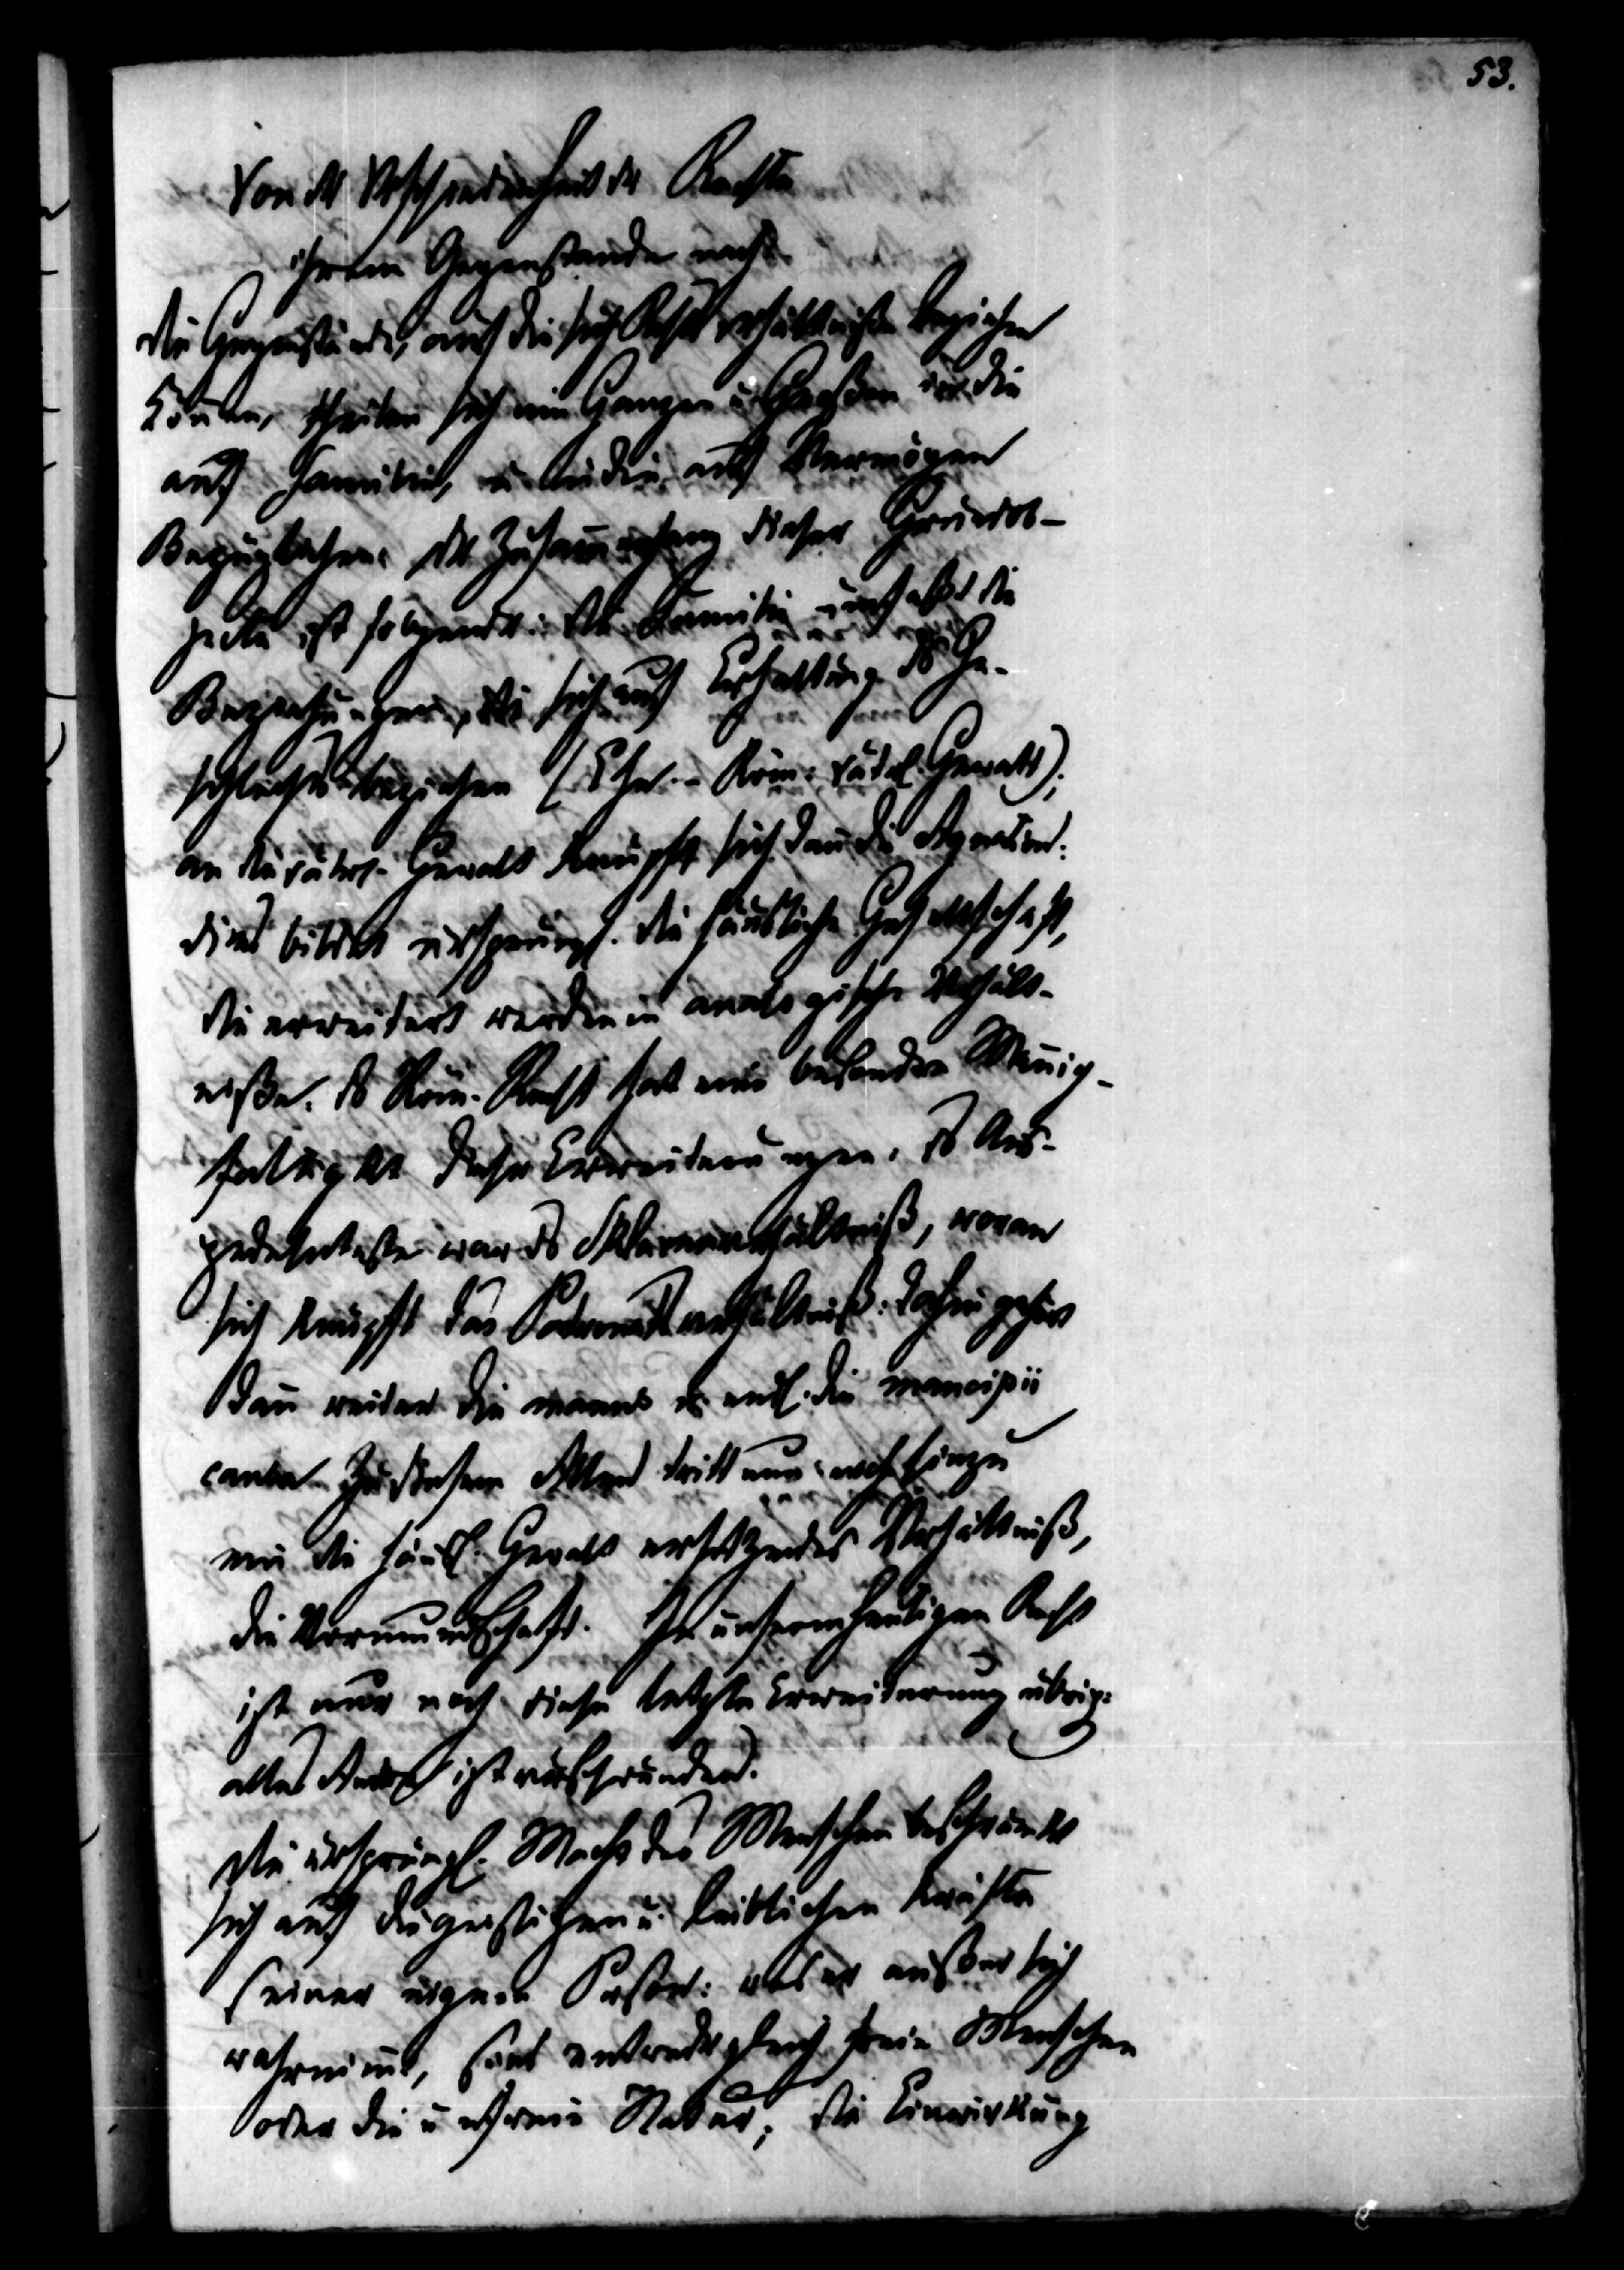 53.
Von der Verschiedenheit der Rechte
ihrem Gegenstande nach.
Die Gegenstände, auf die sich Rechtsverhältniße beziehen
können, theilen sich im Ganzen u. Großen in die
auf Familie, u. in die auf Vermögen
Bezüglichen. Der Zusammenhang dieser Grundob-
jecte ist folgender: Die Familie umfaßt die
Beziehungen, die sich auf Erhaltung des Ge-
schlechts beziehen (Ehe. – Röm. väterl. Gewalt);
an die väterl. Gewalt knüpft sich dann die Agnation:
dies bildet ursprüngl. die häusliche Gesellschaft,
die erweitert werden in analogische Verhält-
niße. Das Röm. Recht hat eine besondere Mannig-
faltigkt dieser Erweiterungen. Das Aus-
gedehnteste war das Sklavenverhältniß, woran
sich knüpft das Patronatverhältniß: dahin gehört
dann weiter die manus u. endl. die mancipii
causa. Zu diesem Allen tritt nun noch hinzu
ein die häusl. Gewalt ersetzendes Verhältniß,
die Vormundschaft. In unserem heutigen Recht
ist nur noch diese letzte Erweiterung übrig:
alles Andre ist verschwunden.
Die ursprüngl. Macht des Menschen beschränkt
sich auf die geistigen u. leiblichen Kräfte
seiner eigenen Person: was er außer sich
wahrnimmt, sind entweder gleich freie Menschen
oder die unfreie Natur; die Einwirkung